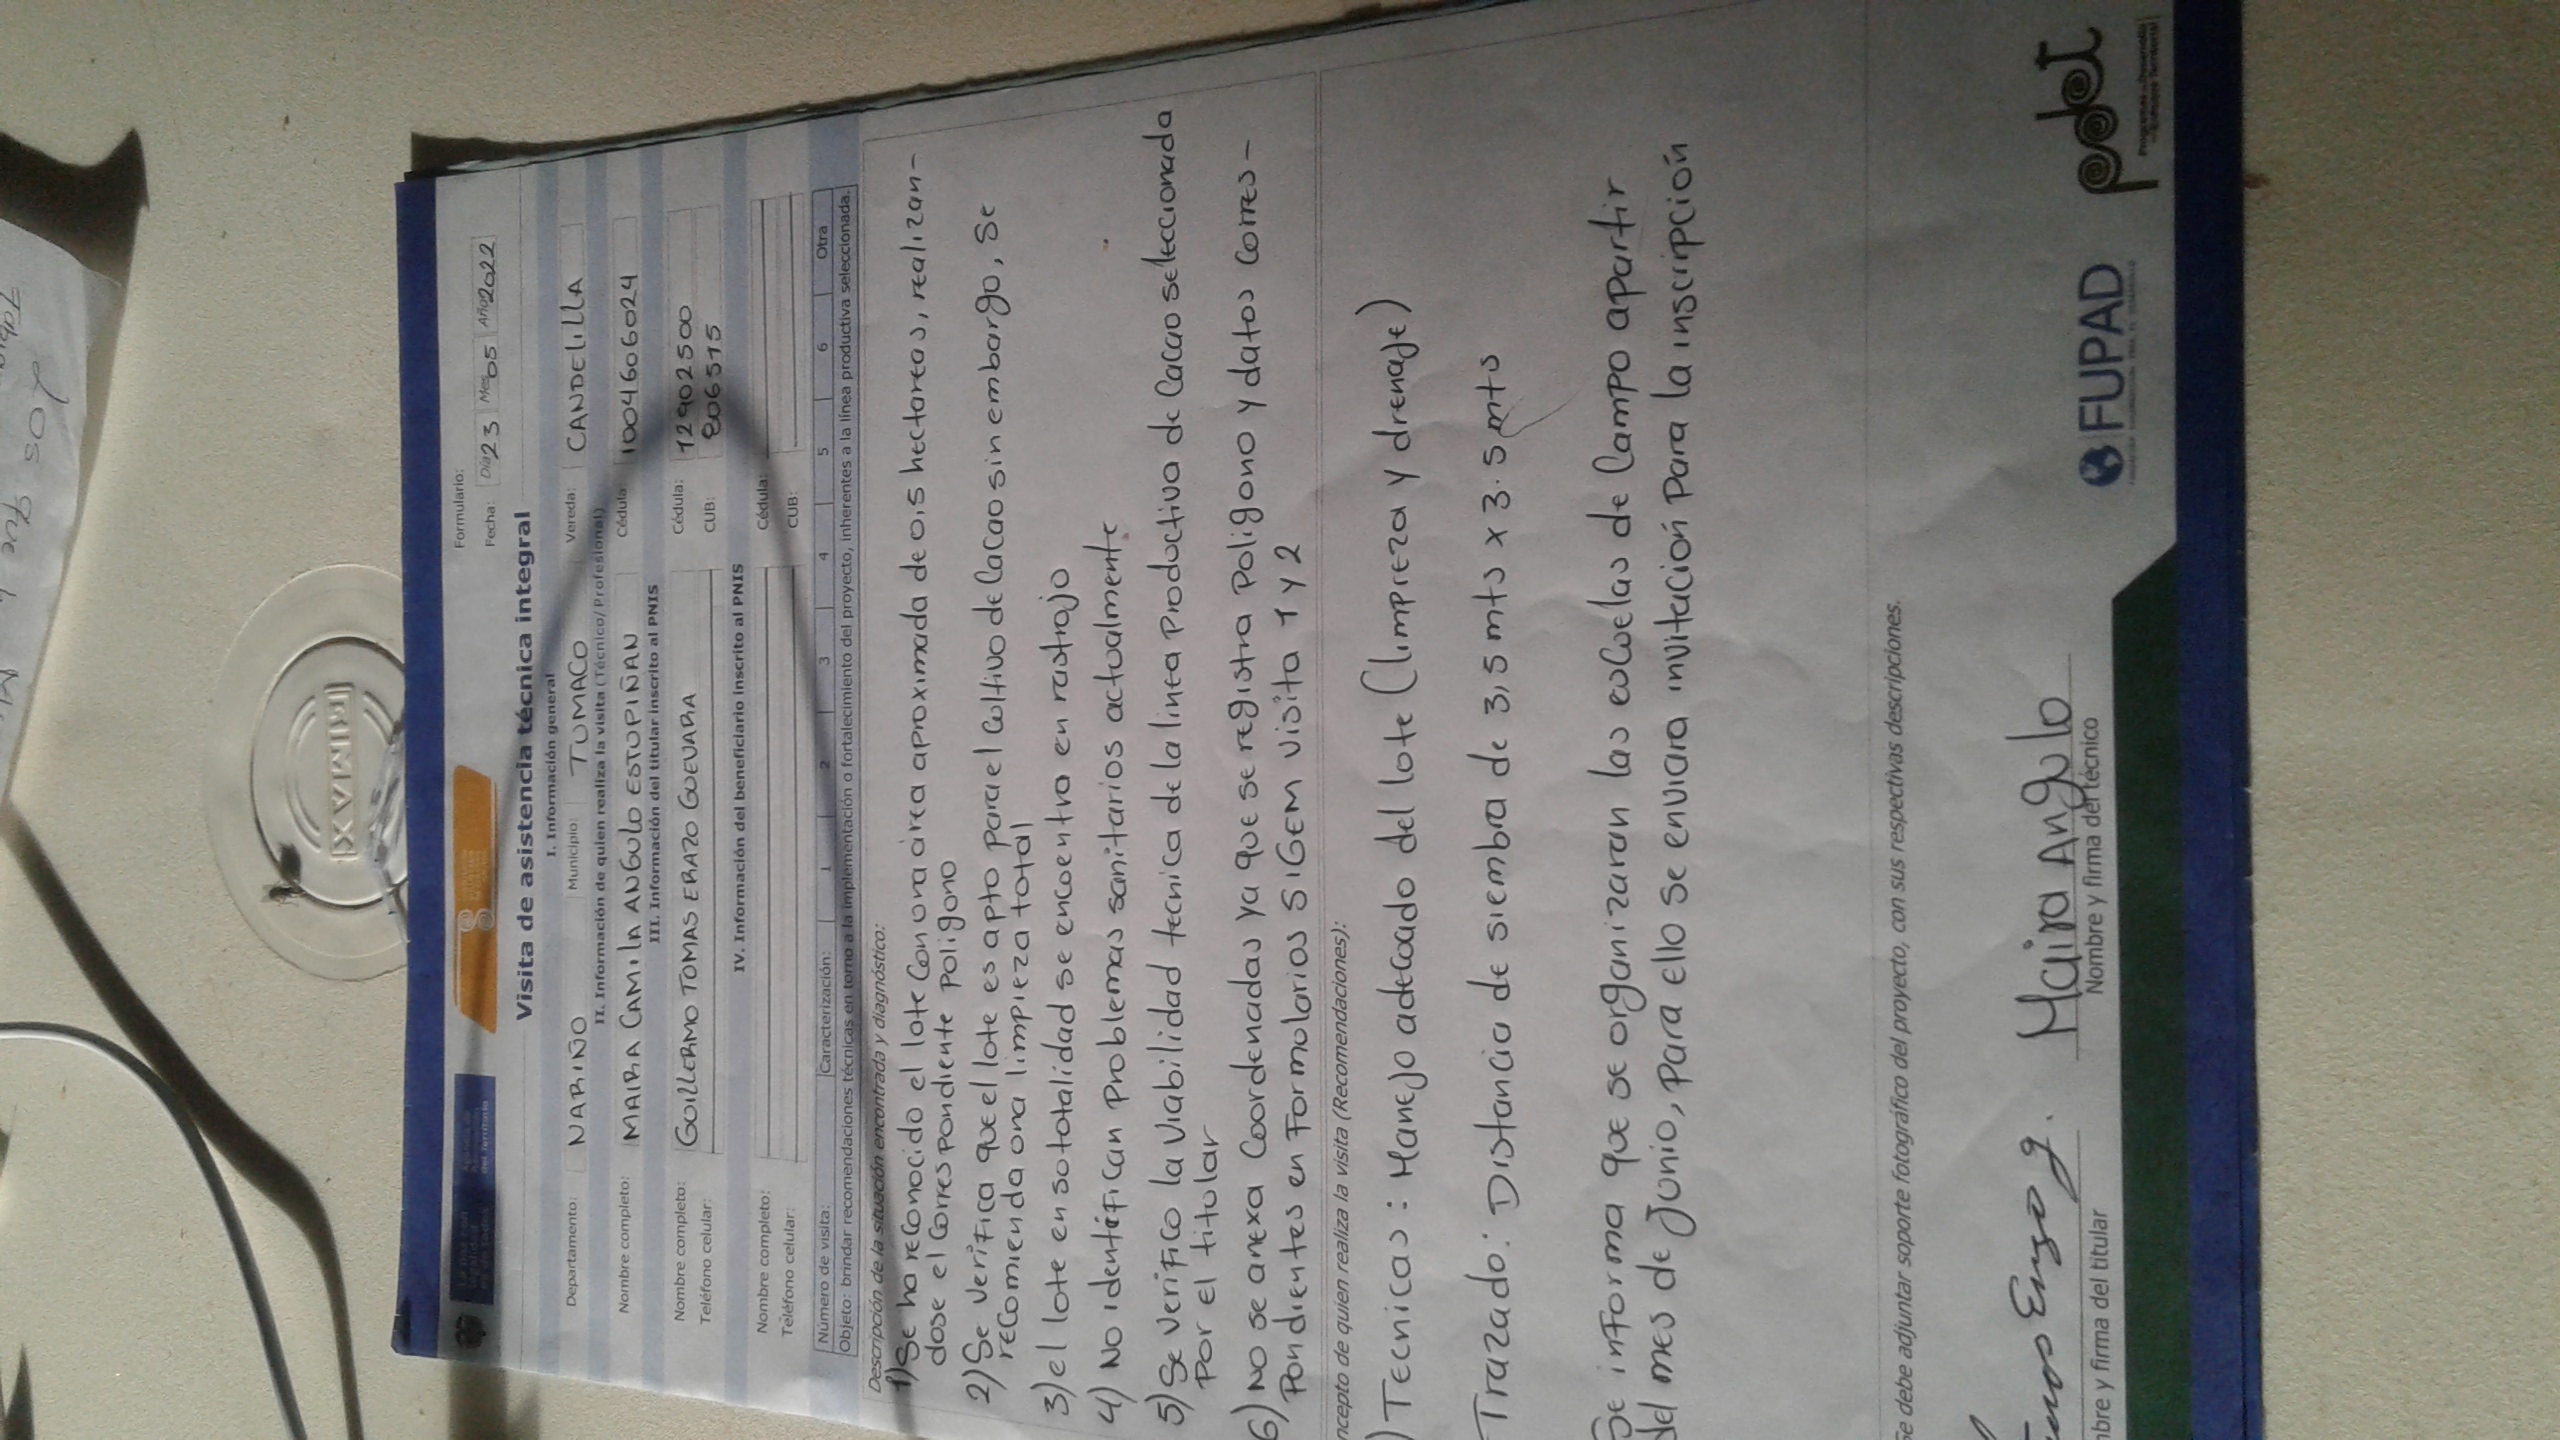 Formulario:
Fecha: Día 23 Mes 05 Año 2022
Visita de asistencia técnica integral
I. Información general
Departamento: NARIÑO Municipio: TUMACO Vereda: CANDELILLA
II. Información de quien realiza la visita (Técnico/Profesional)
Nombre completo: MAIRA CAMILA ANGULO ESTUPIÑAN Cédula: 1004606024
III. Información del titular inscrito al PNIS
Nombre completo: GUILLERMO TOMAS ERAZO GUEVARA Cédula: 12902500
Teléfono celular: CUB: 806515
IV. Información del beneficiario inscrito al PNIS
Nombre completo: Cédula:
Teléfono celular: CUB:
Número de visita: Caracterización: 1 2 3 4 5 6 Otra
Objeto: brindar recomendaciones técnicas en torno a la implementación o fortalecimiento del proyecto, inherentes a la línea productiva seleccionada.
Descripción de la situación encontrada y diagnóstico:
1) Se ha reconocido el lote con una área aproximada de 0,5 hectareas, realizan-
dose el correspondiente poligono
2) Se verifica que el lote es apto para el cultivo de cacao sin embargo, se
recomienda una limpieza total
3) el lote en su totalidad se encuentra en rastrojo
4) No identifican problemas sanitarios actualmente
5) Se verifico la viabilidad tecnica de la linea productiva de cacao seleccionada
por el titular
6) No se anexa coordenadas ya que se registra poligono y datos corres-
pondientes en Formularios SIGEM visita 1 y 2
ncepto de quien realiza la visita (Recomendaciones):
) Tecnicas: Manejo adecuado del lote (limpieza y drenaje)
Trazado: Distancia de siembra de 3,5 mts x 3.5 mts
Se informa que se organizaran las escuelas de campo apartir
del mes de Junio, para ello se enviara invitación para la inscripción
Se debe adjuntar soporte fotográfico del proyecto, con sus respectivas descripciones.
Maira Angulo
mbre y firma del titular Nombre y firma del técnico
FUPAD
pdet
IRIMAX